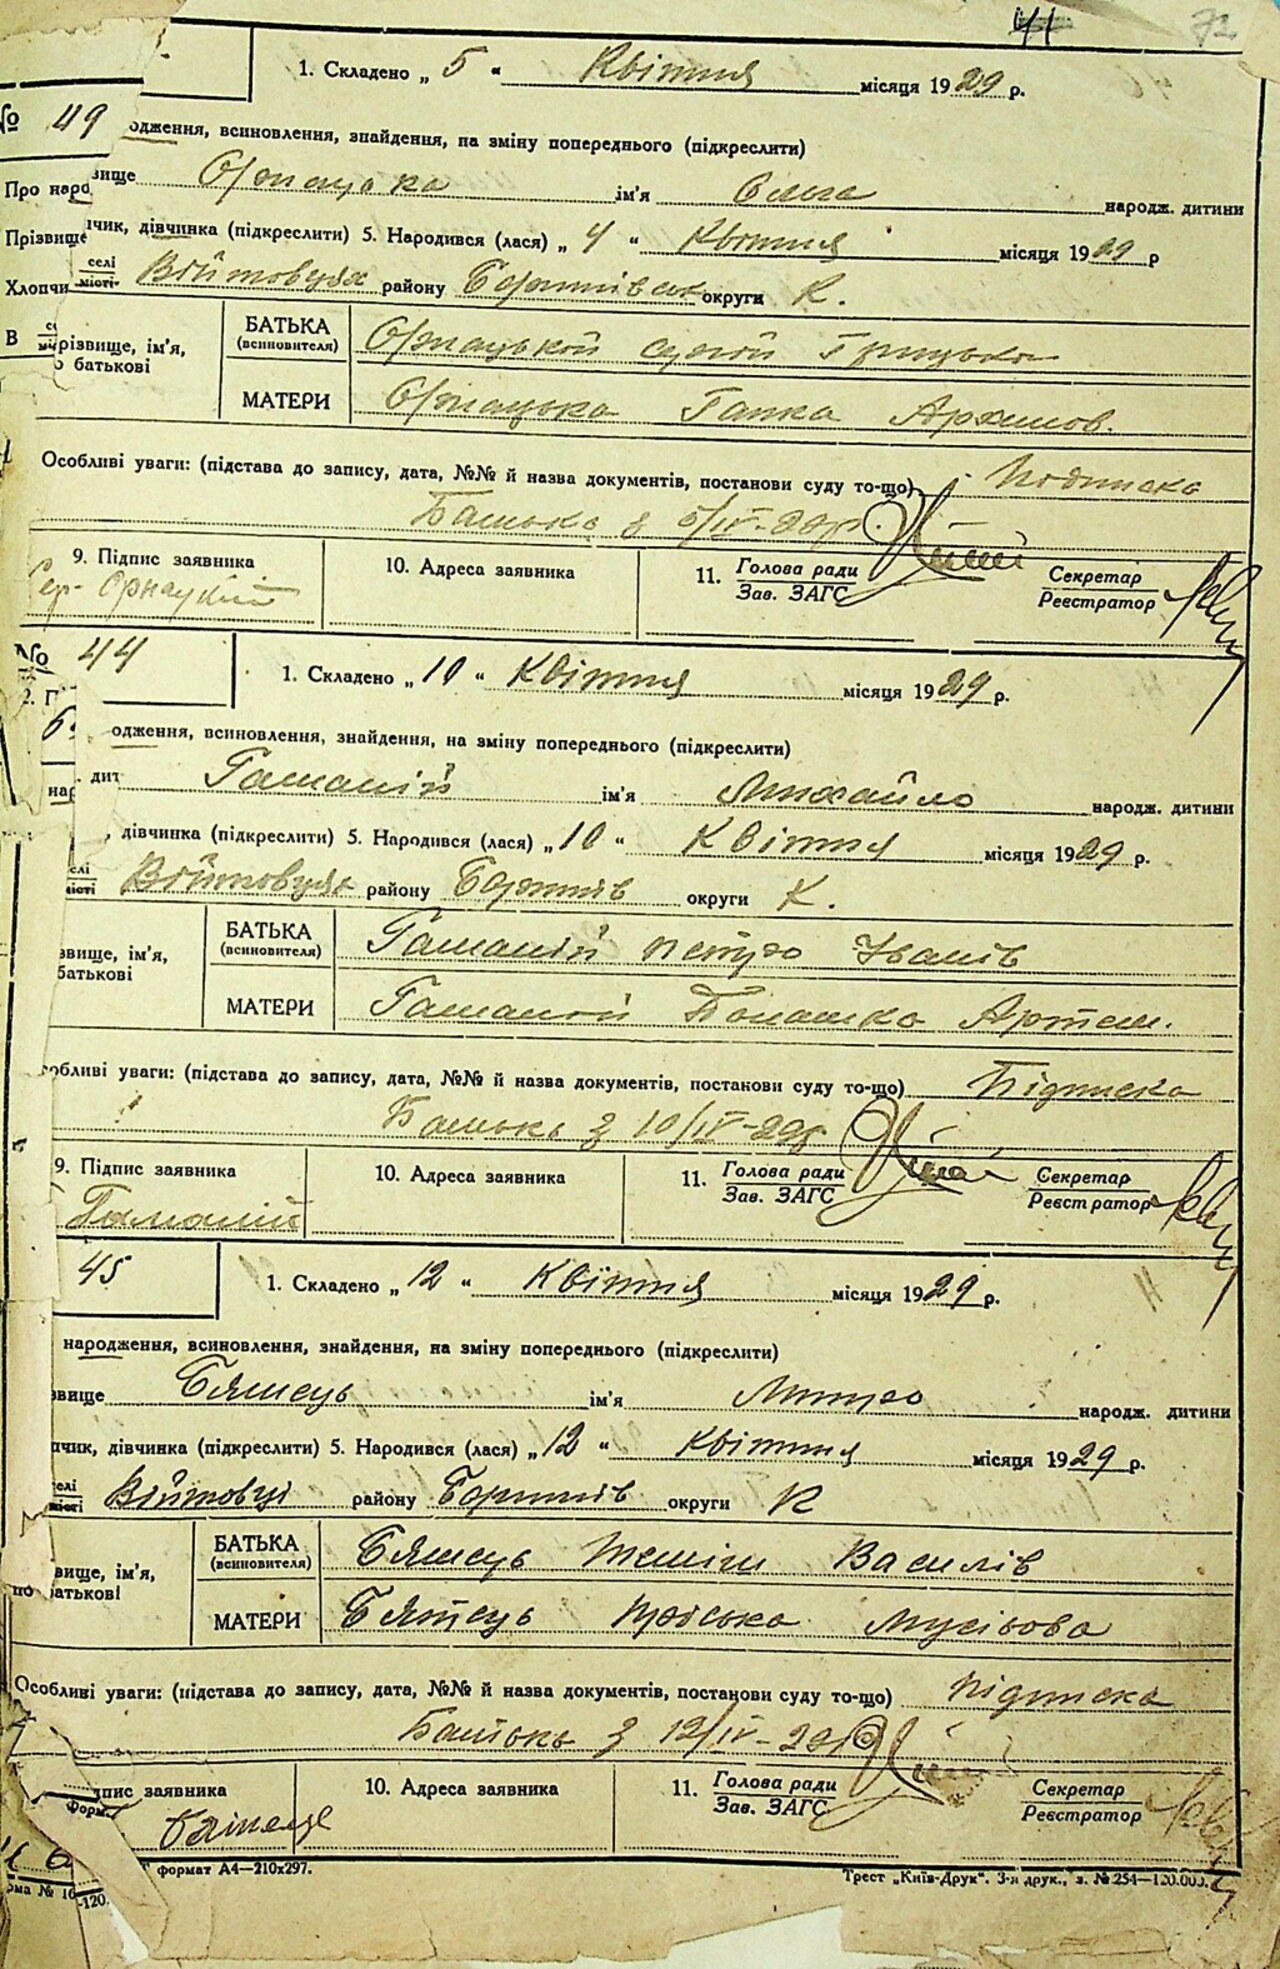 41 72
1. Складено „ 5 “ Квітня місяця 1929 р.
№ 49
одження, всиновлення, знайдення, на зміну попереднього (підкреслити)
Про наро
звище Орнацька ім'я Ольга народж. дитини
Прізвище
чик, дівчинка (підкреслити) 5. Народився (лася) „ 4 “ Квітня місяця 1929 р
Хлопчи
селі
місті Війтовцях району Бориспівськ округи К.
В
різвище, ім'я,
о батькові
БАТЬКА
(всиновителя)
Орнацький Сергій Грицьков
МАТЕРИ
Орнацька Гапка Архипов.
Особливі уваги: (підстава до запису, дата, №№ й назва документів, постанови суду то-що) Подписка
Батька з 5/IV-29р.
9. Підпис заявника
Сер- Орнаукій
10. Адреса заявника
11. Голова ради
Зав. ЗАГС
Секретар
Реєстратор
№ 44
1. Складено „ 10 “ Квітня місяця 1929 р.
2. Г
одження, всиновлення, знайдення, на зміну попереднього (підкреслити)
нар
дит Гамалій ім'я Михайло народж. дитини
, дівчинка (підкреслити) 5. Народився (лася) „ 10 “ Квітня місяця 1929 р.
елі
місті Війтовцях району Боришпів округи К.
звище, ім'я,
батькові
БАТЬКА
(всиновителя)
Гамалій Петро Іванів
МАТЕРИ
Гамалій Палажка Артем.
собливі уваги: (підстава до запису, дата, №№ й назва документів, постанови суду то-що) Підписка
Батька з 10/IV-29р
9. Підпис заявника
Гамалій
10. Адреса заявника
11. Голова ради
Зав. ЗАГС
Секретар
Реєстратор
45
1. Складено „ 12 “ Квітня місяця 1929 р.
народження, всиновлення, знайдення, на зміну попереднього (підкреслити)
звище Бятець ім'я Митро народж. дитини
пчик, дівчинка (підкреслити) 5. Народився (лася) „ 12 “ Квітня місяця 1929 р.
елі
місті Війтовці району Боришпів округи К
звище, ім'я,
по батькові
БАТЬКА
(всиновителя)
Бятець Василів
МАТЕРИ
Бятець Мусієва
Особливі уваги: (підстава до запису, дата, №№ й назва документів, постанови суду то-що) Підписка
Батька з 12/IV-29р
дпис заявника
10. Адреса заявника
11. Голова ради
Зав. ЗАГС
Секретар
Реєстратор
Форм.
формат А4—210х297.
рма № 10
-120.
Трест „Київ-Друк“. 3-я друк., з. № 254—120.000.